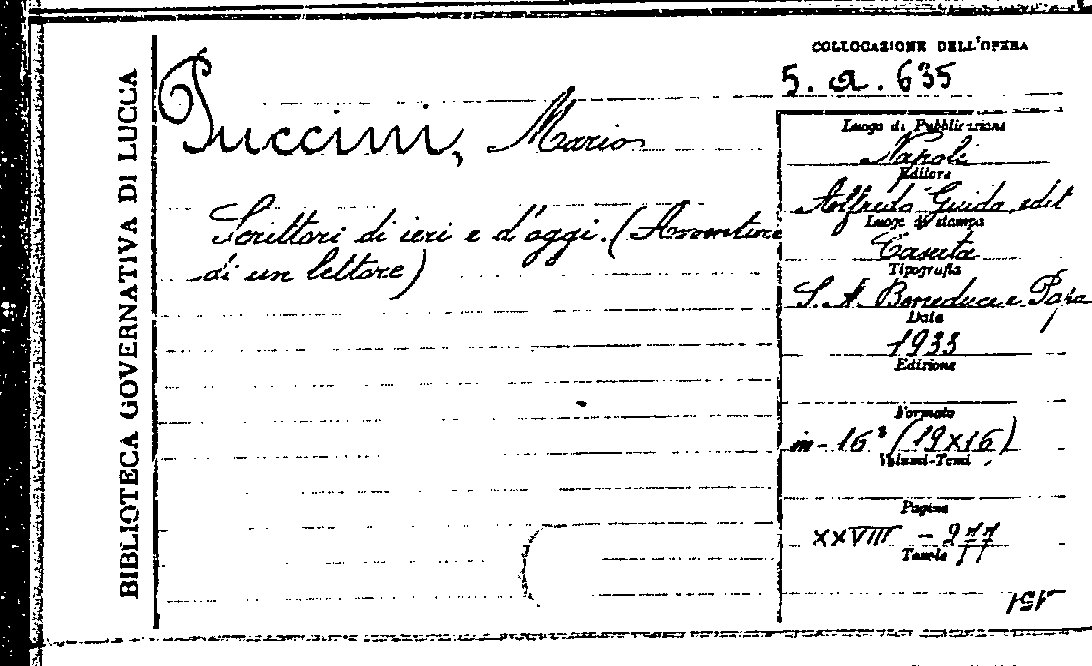 BIBLIOTECA GOVERNATIVA DI LUCCA
COLLOCAZIONE DELL'OPERA
5. a. 635
Puccini, Mario
Scrittori di ieri e d'oggi. (Avventure
di un lettore)
Luogo di Pubblicazione
Napoli
Editore
Alfredo Guida, edit
Luogo di stampa
Caserta
Tipografia
S. A. Beneduce e Papa
Data
1933
Edizione
Formato
in-16° (19x16)
Volumi-Tomi
Pagine
XXVIII - 277
Tavole
151